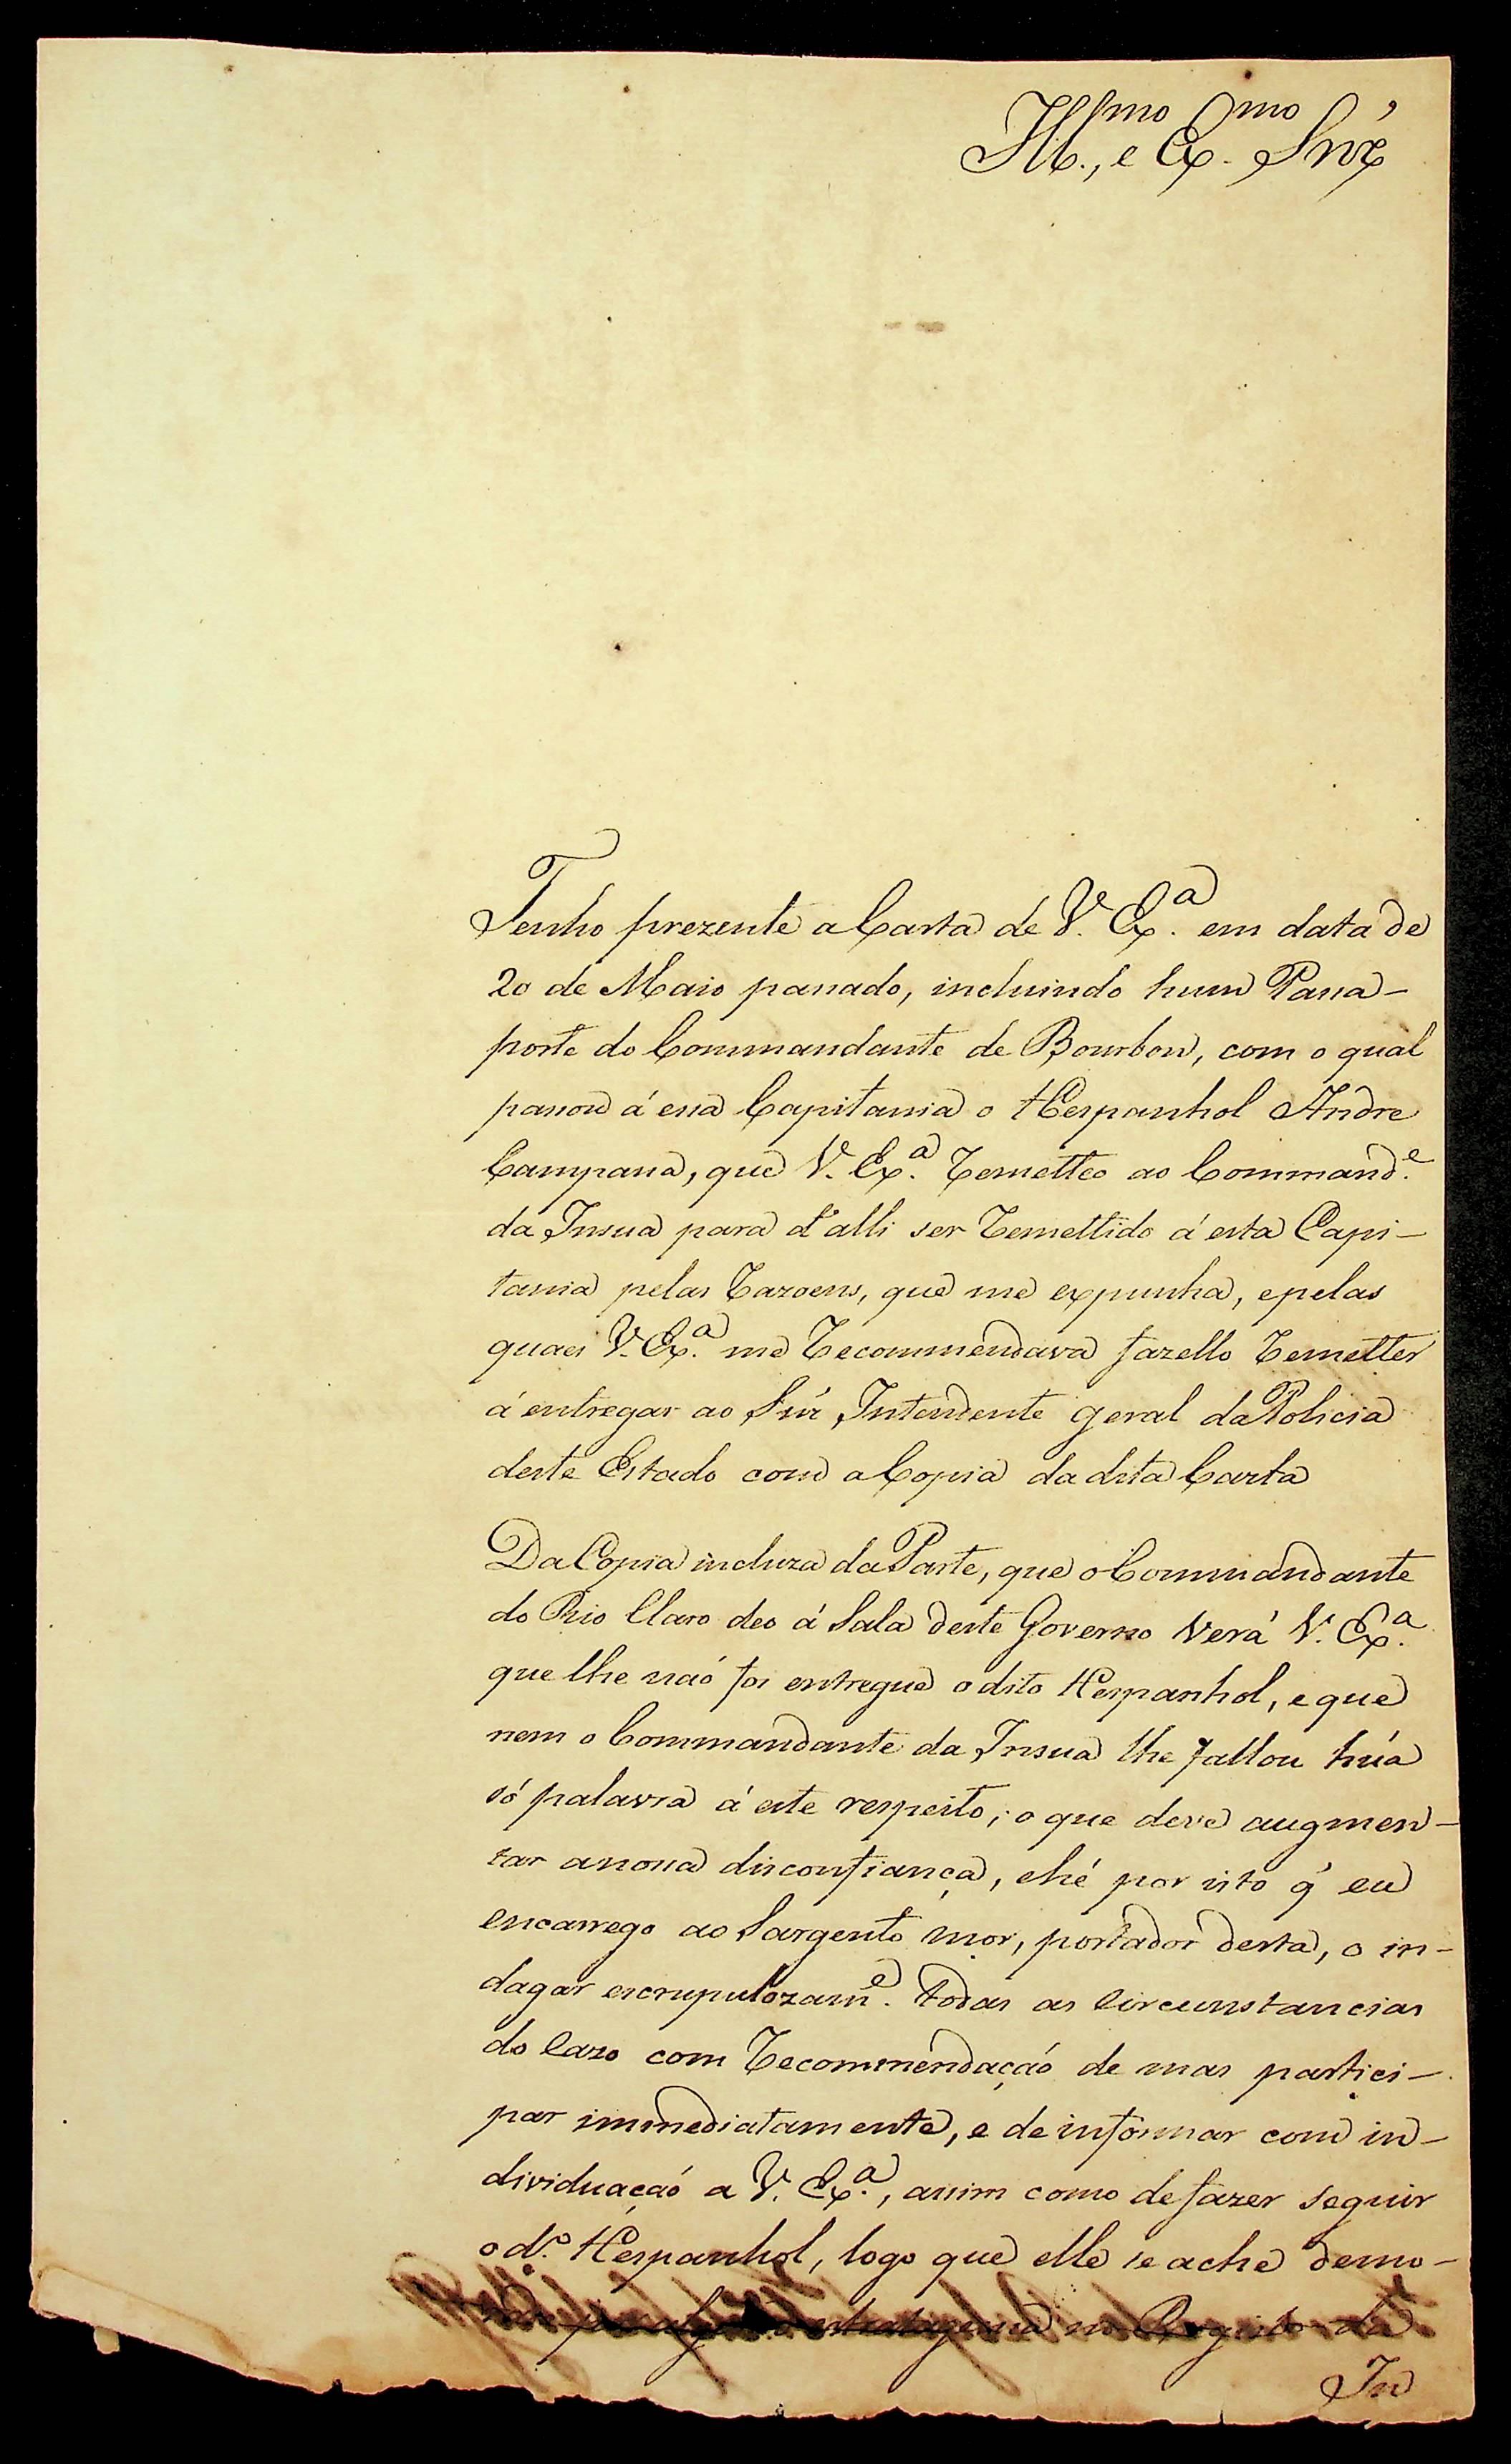 Ill.mo, e Ex.mo Snr̃
Tenho prezente a Carta de V. Ex.a em data de
20 de Maio passado, incluindo hum Passa-
porte do Commandante de Bourbon, com o qual
passou á essa Capitania o Hespanhol Andre
Campana, que V. Ex.a Remetteo ao Command.e
da Insua para d'alli ser Remettido á esta Capi-
tania pelas Razoens, que me expunha, e pelas
quaes V. Ex.a me Recommendava fazello Remetter
á entregar ao Snr̃ Intendente geral da Policia
deste Estado com a Copia da dita Carta
Da Copia incluza da Parte, que o Commandante
do Rio Claro deo á Sala deste Governo verá V. Ex.a
que lhe naõ foi entregue o dito Hespanhol, e que
nem o Commandante da Insua lhe fallou hũa
só palavra á este respeito; o que deve augmen-
tar a nossa disconfiança, e hé por isto q̃ eu
encarrego ao Sargento mor, portador desta, o in-
dagar escrupulozam.e todas as Circunstancias
do Cazo com Recommendaçaõ de mas partici-
par immediatamente, e de informar com in-
dividuaçaõ a V. Ex.a, assim como de fazer seguir
o d.o Hespanhol, logo que elle se ache demo-
estratagema no Registo da
In